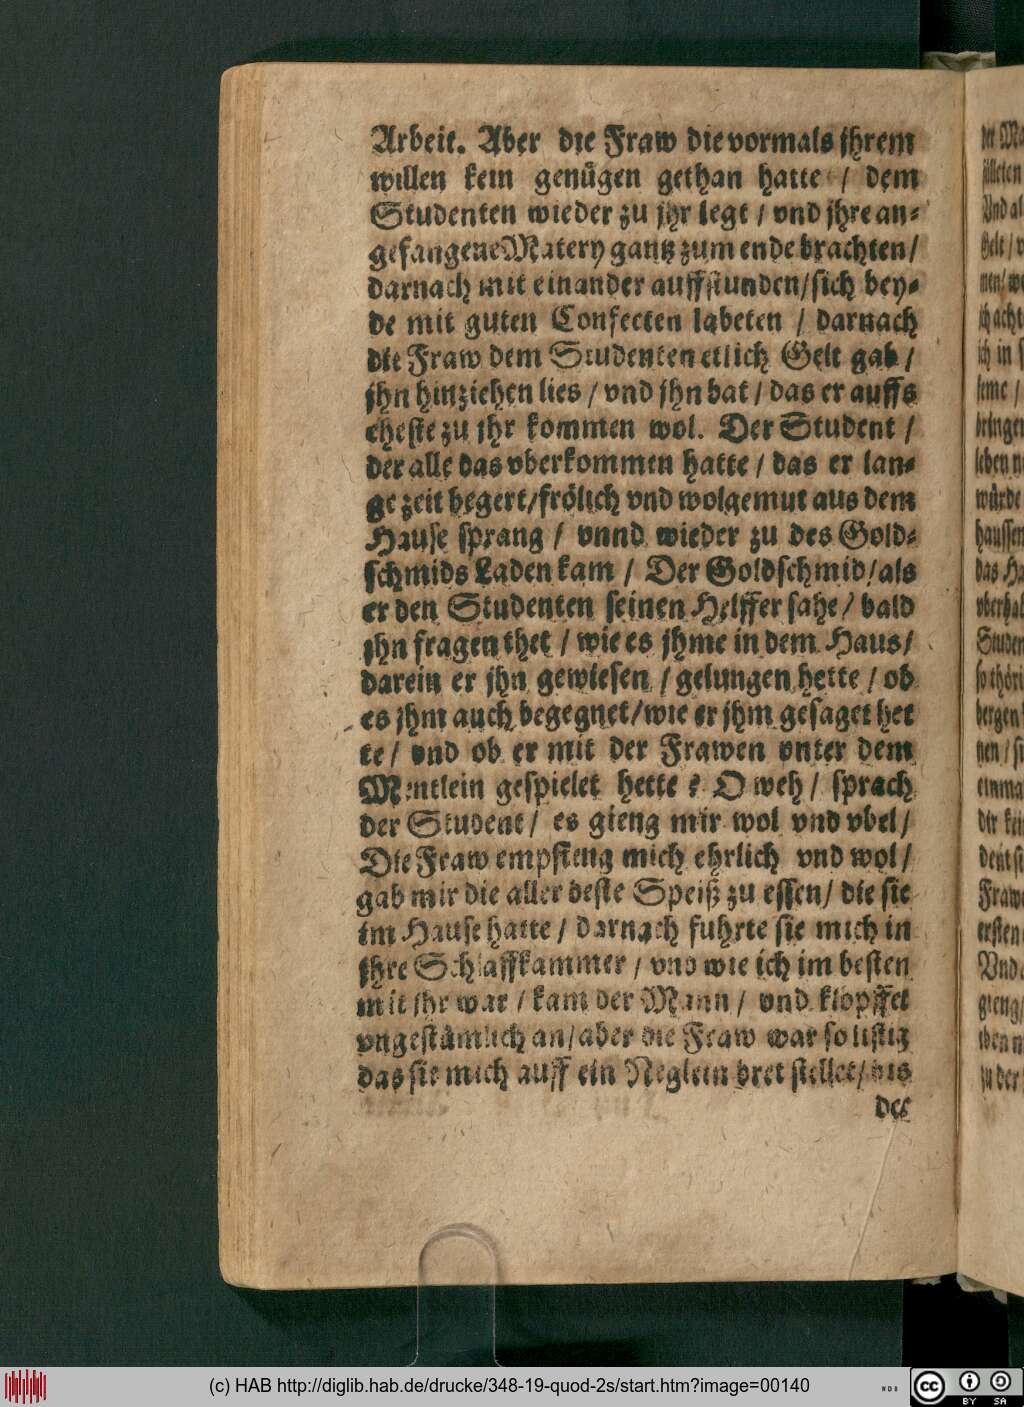 Arbeit. Aber die Fraw die vormals jhrem
willen kein genügen gethan hatte / dem
Studenten wieder zu jhr legt / vnd jhre an-
gefangene Matery gantz zum ende brachten /
darnach mit einander auffstunden / sich bey-
de mit guten Confecten labeten / darnach
die Fraw dem Studenten etlich Gelt gab /
jhn hinziehen lies / vnd jhn bat / das er auffs
eheste zu jhr kommen wol. Der Student /
der alle das vberkommen hatte / das er lan-
ge zeit begert / frölich vnd wolgemut aus dem
Hause sprang / vnnd wieder zu des Gold-
schmids Laden kam / Der Goldschmid / als
er den Studenten seinen Helffer sahe / bald
jhn fragen thet / wie es jhme in dem Haus /
darein er jhn gewiesen / gelungen hette / ob
es jhm auch begegnet / wie er jhm gesaget het
te / vnd ob er mit der Frawen vnter dem
Mentlein gespielet hette ? O weh / sprach
der Student / es gieng mir wol vnd vbel /
Die Fraw empfieng mich ehrlich vnd wol /
gab mir die aller beste Speiß zu essen / die sie
im Hause hatte / darnach fuhrte sie mich in
jhre Schlaffkammer / vnd wie ich im besten
mit jhr war / kam der Mann / vnd klopffet
vngestümlich an / aber die Fraw war so listig
das sie mich auff ein Neglein bret stellet / bis
der
(c) HAB http://diglib.hab.de/drucke/348-19-quod-2s/start.htm?image=00140
cc BY SA